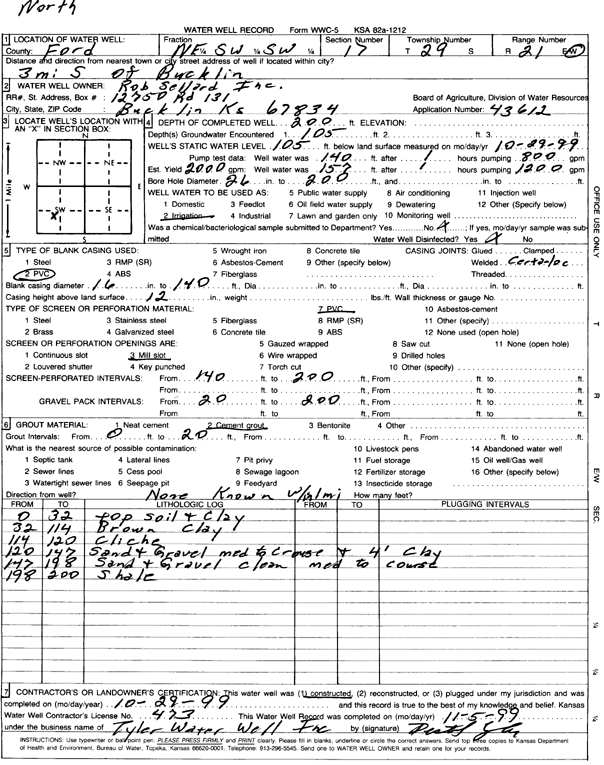 North
WATER WELL RECORD Form WWC-5 KSA 82a-1212
1 LOCATION OF WATER WELL: Fraction Section Number Township Number Range Number
County: Ford NE ¼ SW ¼ SW ¼ 17 T 29 S R 21 E/W
Distance and direction from nearest town or city street address of well if located within city?
3 mi S of Bucklin
2 WATER WELL OWNER: Rob Sellard Inc.
RR#, St. Address, Box # : 12750 Rd 131 Board of Agriculture, Division of Water Resources
City, State, ZIP Code : Bucklin Ks 67834 Application Number: 43612
3 LOCATE WELL'S LOCATION WITH AN "X" IN SECTION BOX:
N
NW NE
W E
SW SE
X
S
1 Mile
4 DEPTH OF COMPLETED WELL 200 ft. ELEVATION:
Depth(s) Groundwater Encountered 1. 105 ft. 2. ft. 3. ft.
WELL'S STATIC WATER LEVEL 105 ft. below land surface measured on mo/day/yr 10-29-99
Pump test data: Well water was 140 ft. after 1 hours pumping 800 gpm
Est. Yield 2000 gpm: Well water was 157 ft. after 1 hours pumping 1200 gpm
Bore Hole Diameter 26 in. to 200 ft., and in. to ft.
WELL WATER TO BE USED AS: 5 Public water supply 8 Air conditioning 11 Injection well
1 Domestic 3 Feedlot 6 Oil field water supply 9 Dewatering 12 Other (Specify below)
2 Irrigation 4 Industrial 7 Lawn and garden only 10 Monitoring well
Was a chemical/bacteriological sample submitted to Department? Yes No X ; If yes, mo/day/yr sample was submitted
Water Well Disinfected? Yes X No
5 TYPE OF BLANK CASING USED: 5 Wrought iron 8 Concrete tile CASING JOINTS: Glued Clamped
1 Steel 3 RMP (SR) 6 Asbestos-Cement 9 Other (specify below) Welded Certa-loc
2 PVC 4 ABS 7 Fiberglass Threaded
Blank casing diameter 16 in. to 140 ft., Dia in. to ft., Dia in. to ft.
Casing height above land surface 12 in., weight lbs./ft. Wall thickness or gauge No.
TYPE OF SCREEN OR PERFORATION MATERIAL: 7 PVC 10 Asbestos-cement
1 Steel 3 Stainless steel 5 Fiberglass 8 RMP (SR) 11 Other (specify)
2 Brass 4 Galvanized steel 6 Concrete tile 9 ABS 12 None used (open hole)
SCREEN OR PERFORATION OPENINGS ARE: 5 Gauzed wrapped 8 Saw cut 11 None (open hole)
1 Continuous slot 3 Mill slot 6 Wire wrapped 9 Drilled holes
2 Louvered shutter 4 Key punched 7 Torch cut 10 Other (specify)
SCREEN-PERFORATED INTERVALS: From 140 ft. to 200 ft., From ft. to ft.
From ft. to ft., From ft. to ft.
GRAVEL PACK INTERVALS: From 20 ft. to 200 ft., From ft. to ft.
From ft. to ft., From ft. to ft.
6 GROUT MATERIAL: 1 Neat cement 2 Cement grout 3 Bentonite 4 Other
Grout Intervals: From 0 ft. to 20 ft., From ft. to ft., From ft. to ft.
What is the nearest source of possible contamination: 10 Livestock pens 14 Abandoned water well
1 Septic tank 4 Lateral lines 7 Pit privy 11 Fuel storage 15 Oil well/Gas well
2 Sewer lines 5 Cess pool 8 Sewage lagoon 12 Fertilizer storage 16 Other (specify below)
3 Watertight sewer lines 6 Seepage pit 9 Feedyard 13 Insecticide storage
Direction from well? None Known W/in 1/4 mi How many feet?
FROM TO LITHOLOGIC LOG FROM TO PLUGGING INTERVALS
0 32 top soil & Clay
32 114 Brown Clay
114 120 Cliche
120 147 Sand & Gravel med to Crouse & 4' Clay
147 198 Sand & Gravel clean med to course
198 200 Shale
7 CONTRACTOR'S OR LANDOWNER'S CERTIFICATION: This water well was (1) constructed, (2) reconstructed, or (3) plugged under my jurisdiction and was
completed on (mo/day/year) 10-29-99 and this record is true to the best of my knowledge and belief. Kansas
Water Well Contractor's License No. 473 This Water Well Record was completed on (mo/day/yr) 11-5-99
under the business name of Tyler Water Well Inc by (signature)
INSTRUCTIONS: Use typewriter or ball point pen. PLEASE PRESS FIRMLY and PRINT clearly. Please fill in blanks, underline or circle the correct answers. Send top three copies to Kansas Department
of Health and Environment, Bureau of Water, Topeka, Kansas 66620-0001. Telephone: 913-296-5545. Send one to WATER WELL OWNER and retain one for your records.
OFFICE USE ONLY
T
R
E/W
SEC.
¼
¼
¼